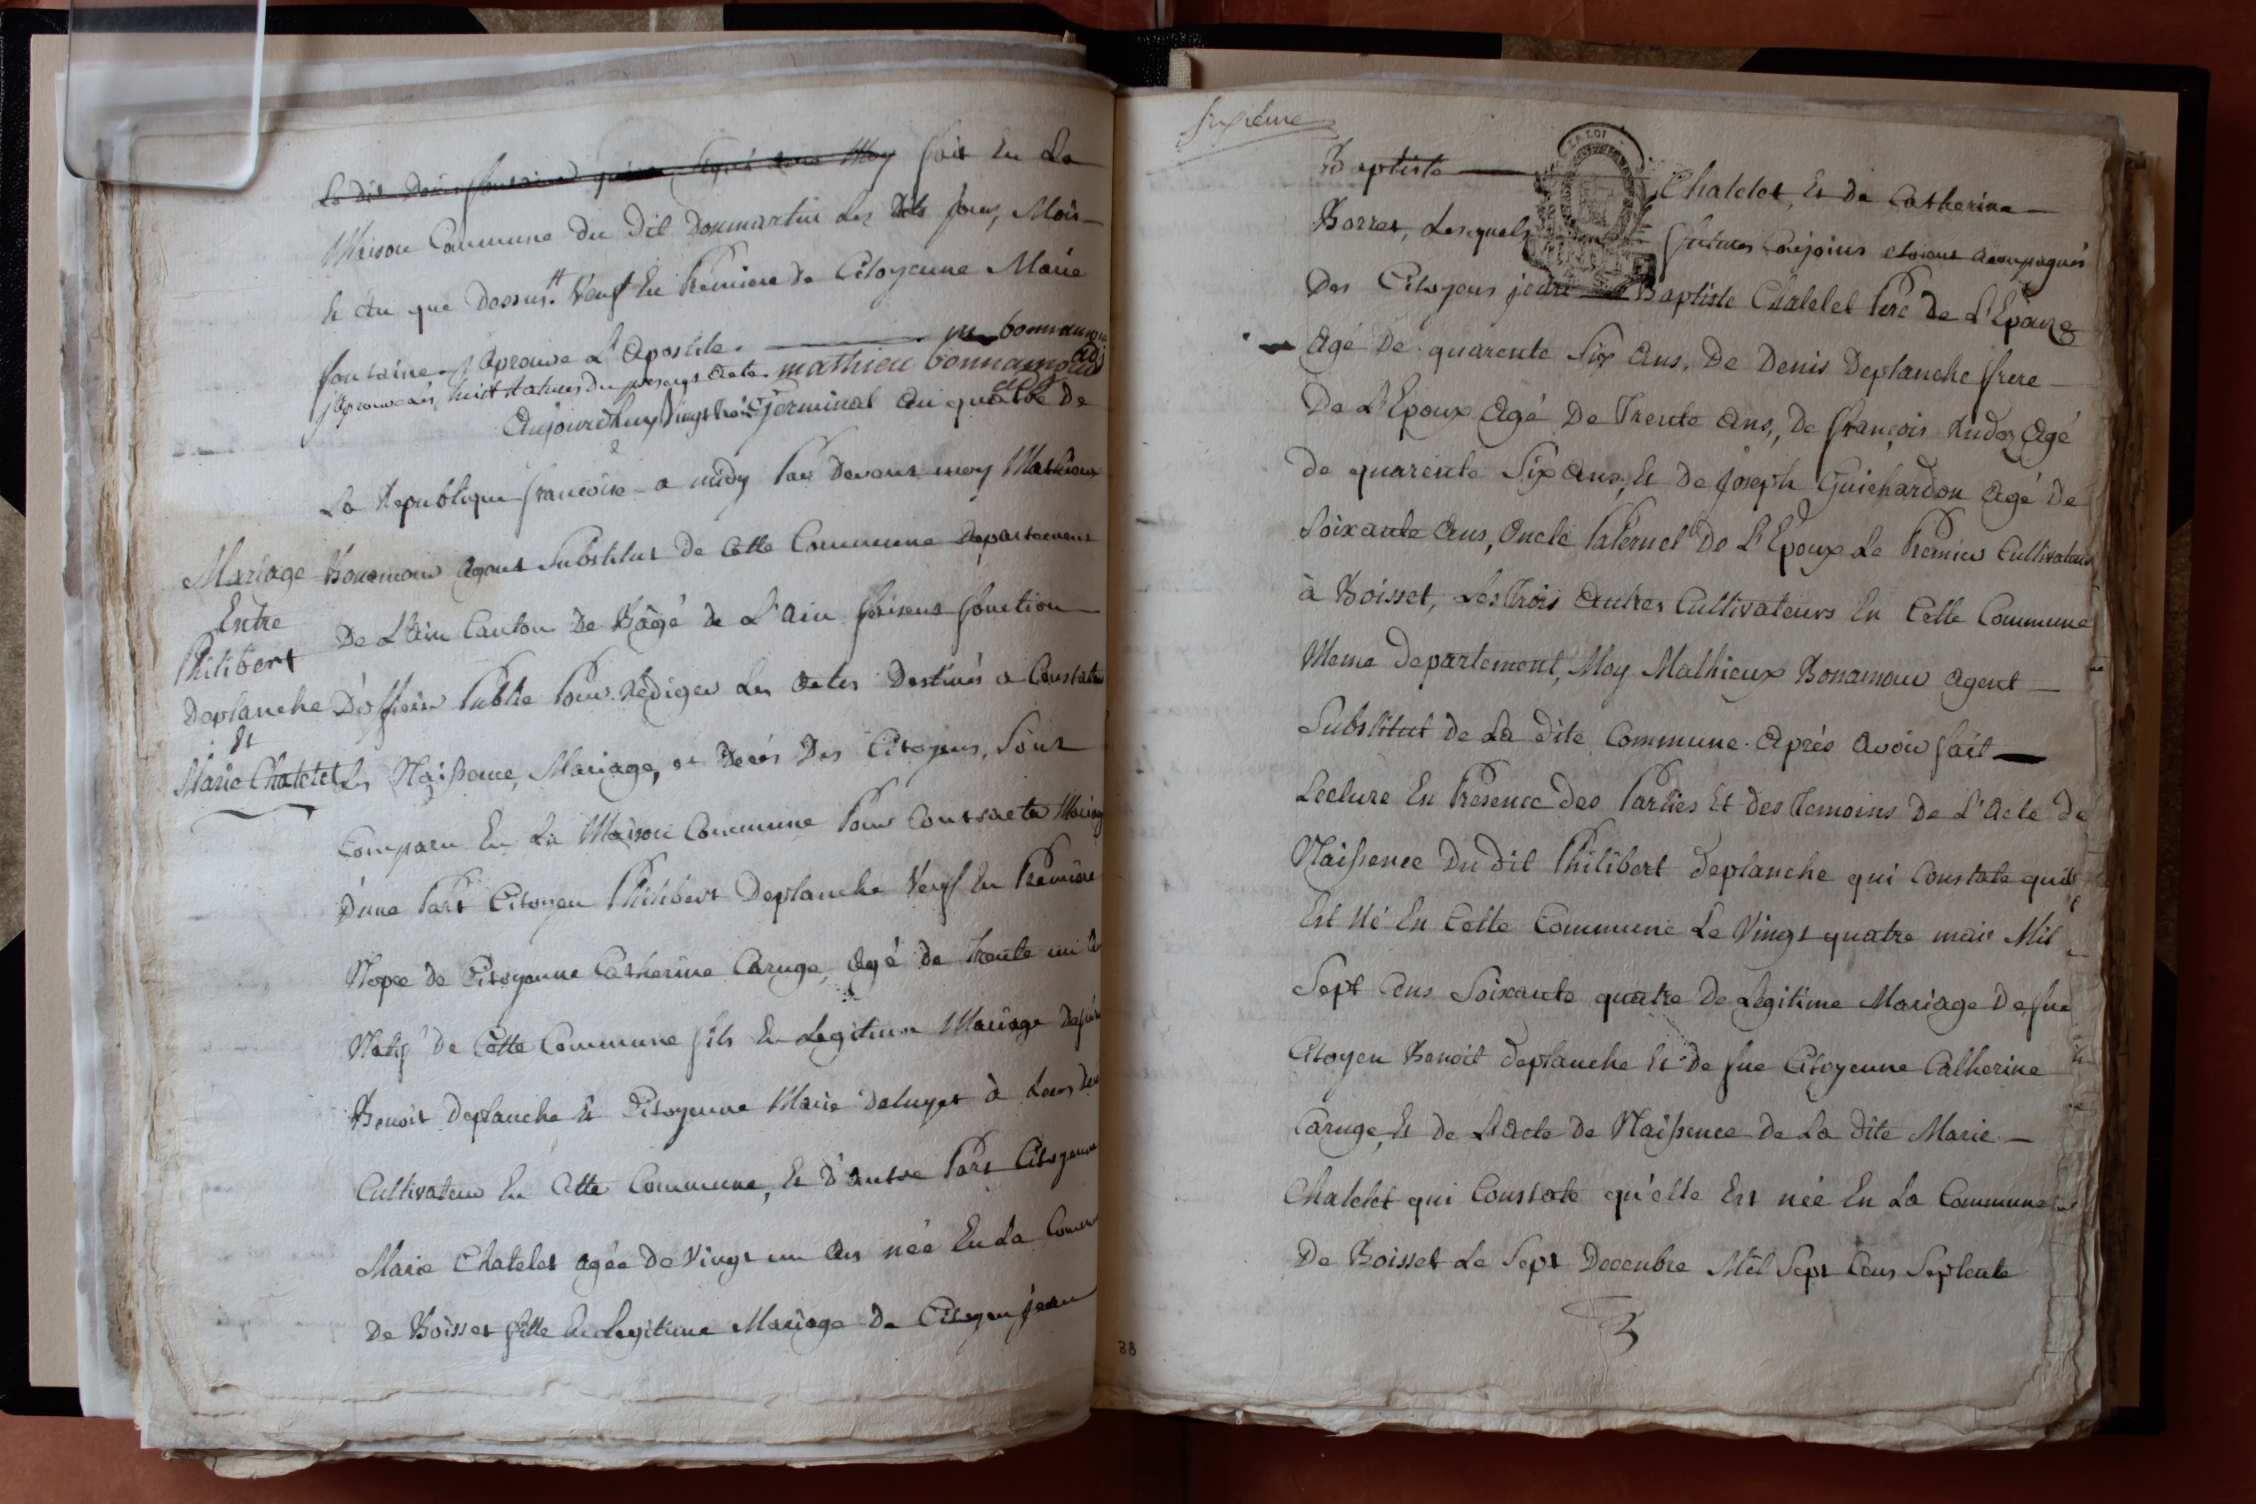 fait En La
Maison Commune du dit Donmartin Les dits jour, Mois
Et An que Dessus. # Veuf En Premiere de Citoyenne Marie
fontaine. J'Aprouve L'Apostile. bonnamour
j'Aprouve Les huit ratures du present Acte. mathieu bonnamour adj
Aujourdhuy Vingt trois Germinal an quatre de
La Republique francoise a midy Par Devant moy Mathieux
Mariage
Entre
Philibert
Deplanche
Et
Marie Chatelet
Bonamour Agent Substitut De Cette Commune Departement
De L'Ain Canton De Bâgé de L'Ain faisant fonction
D'officier Public Pour Rédiger Les Actes Destinés a Constater
Les Naissance, Mariage, et Decés Des Citoyens, Sont
Comparu En La Maison Commune Pour Contracter Mariage
D'une Part Citoyen Philibert Deplanche Veuf En Premiere
Nopce de Citoyenne Catherine Caruge, Agé de Trente un
Natif de Cette Commune fils En Legitime Mariage
Benoit Deplanche Et Citoyenne Marie
Cultivateur En Cette Commune, Et D'autre Part Citoyenne
Marie Chatelet agée De Vingt un An née En La
De Boisset fille En Legitime Mariage De Citoyen jean
Sixieme
LA LOI
Baptiste Chatelet, Et De Catherine
Borret, Lesquels futurs Conjoins etoient acompagnés
Des Citoyens jean Baptiste Chatelet Pere De L'Epouze
Agé De quarente Six Ans, De Denis Deplanche frere
De L'Epoux Agé De Trente Ans, De françois Agé
De quarente Six Ans, Et De joseph Guichardon Agé De
Soixante Ans, Oncle Paternel De L'Epoux Le Premier Cultivateur
à Boisset, Les Trois Autres Cultivateurs En Cette Commune
Meme Departement, Moy Mathieux Bonamour Agent
Substitut de La dite Commune Aprés Avoir fait
Lecture En Présence des Parties Et des Temoins De L'Acte De
Naissence Du dit Philibert Deplanche qui Constate quil
Est Né En Cette Commune Le Vingt quatre mai Mil
Sept Cens Soixante quatre De Légitime Mariage De fue
Citoyen Benoit Deplanche Et De fue Citoyenne Catherine
Caruge, Et de L'Acte De Naissence De La dite Marie
Chatelet qui Constate qu'elle Est née En La Commune
De Boisset Le Sept Decembre Mil Sept Cens Septente
38